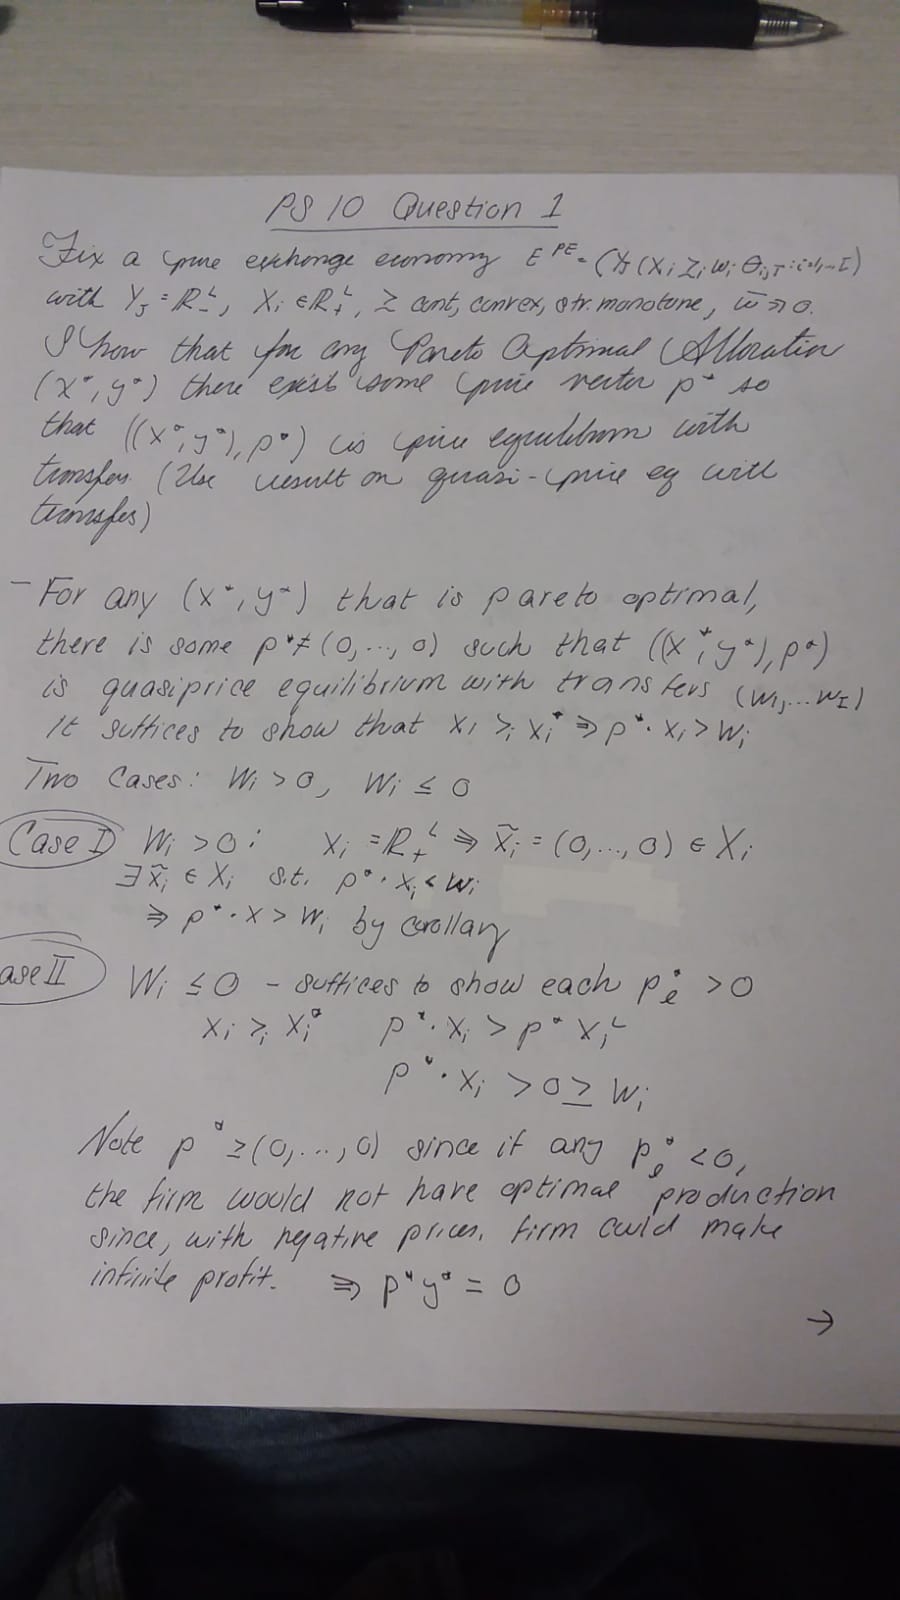 PS 10 Question 1
Fix a pure exchange economy E^PE = (Y, (X_i ≿_i w_i θ_i,T: i=1,..I)
with Y_J = ℝ^L_-, X_i ∈ ℝ^L_+, ≿ cont, convex, str. monotone, w̄ >> 0.
Show that for any Pareto Optimal Allocation
(x*, y*) there exist some price vector p* so
that ((x*, y*), p*) is price equilibrium with
transfers. (Use result on quasi-price eq with
transfers)
- For any (x*, y*) that is pareto optimal,
there is some p* ≠ (0, ..., 0) such that ((x*, y*), p*)
is quasiprice equilibrium with transfers (w_1, ... w_I)
It suffices to show that x_i >_i x_i* ⇒ p* · x_i > w_i
Two Cases: w_i > 0, w_i ≤ 0
Case I w_i > 0: X_i = ℝ^L_+ ⇒ x̃_i = (0, ..., 0) ∈ X_i
∃ x̃_i ∈ X_i s.t. p* · x_i < w_i
⇒ p* · x > w_i by corollary
ase II w_i ≤ 0 - suffices to show each p*_ℓ > 0
x_i >_i x_i* p* · x_i > p* x_i^L
p* · x_i > 0 ≥ w_i
Note p* ≥ (0, ..., 0) since if any p*_ℓ < 0,
the firm would not have optimal production
since, with negative prices, firm could make
infinite profit. ⇒ p* y* = 0
→